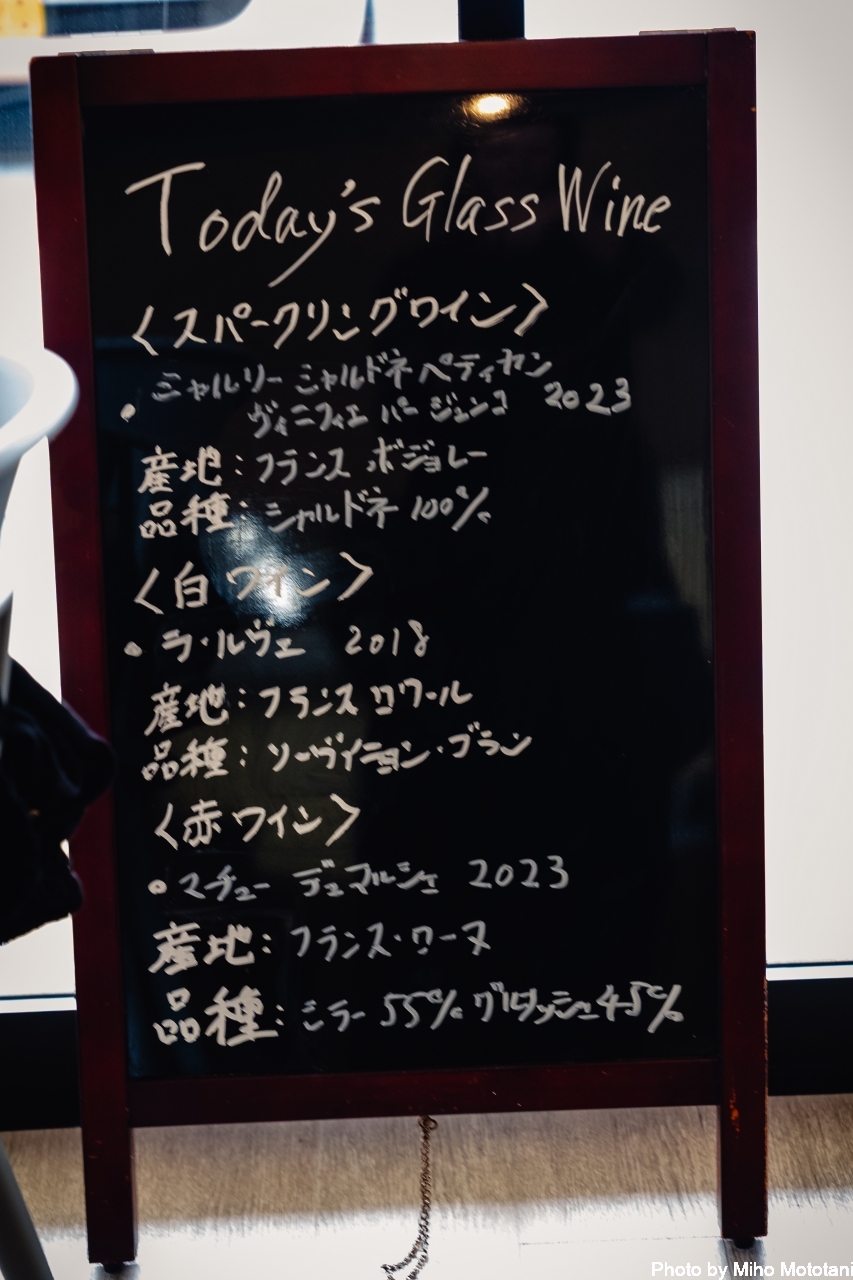 Today's Glass Wine
〈スパークリングワイン〉
・シャルリー シャルドネ ペティヤン
ヴィニフィエ パー ジュンコ 2023
産地：フランス ボジョレー
品種：シャルドネ 100%
〈白ワイン〉
・ラ・ルヴェ 2018
産地：フランス ロワール
品種：ソーヴィニョン・ブラン
〈赤ワイン〉
・マチュー デュマルシェ 2023
産地：フランス・ローヌ
品種：シラー 55% グルナッシュ45%
Photo by Miho Mototani